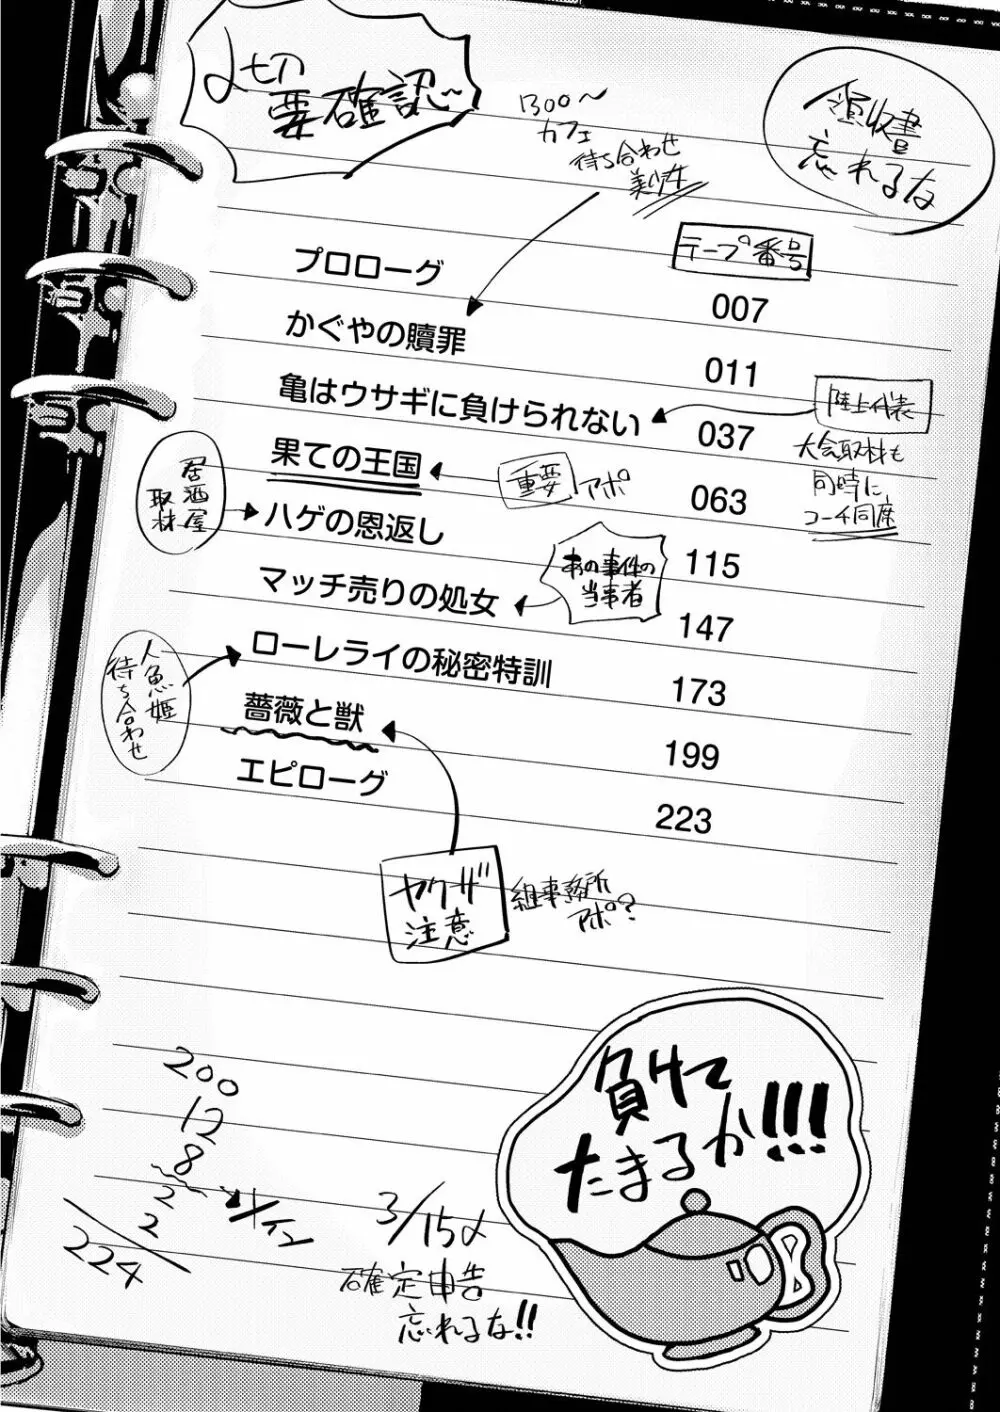 〆切
要確認
1300〜
カフェ
待ち合わせ
美少女
領収書
忘れるな
テープ番号
プロローグ 007
かぐやの贖罪 011
亀はウサギに負けられない 037
陸上代表
大会取材も
同時に、
コーチ同席
果ての王国 063
重要 アポ
居酒屋
取材
ハゲの恩返し 115
あの事件の
当事者
マッチ売りの処女 147
人魚姫
待ち合わせ
ローレライの秘密特訓 173
薔薇と獣 199
エピローグ 223
ヤクザ
注意
組事務所
アポ?
200
12
8
2
2
224
3/15〆
確定申告
忘れるな!!
負けて
たまるか!!!